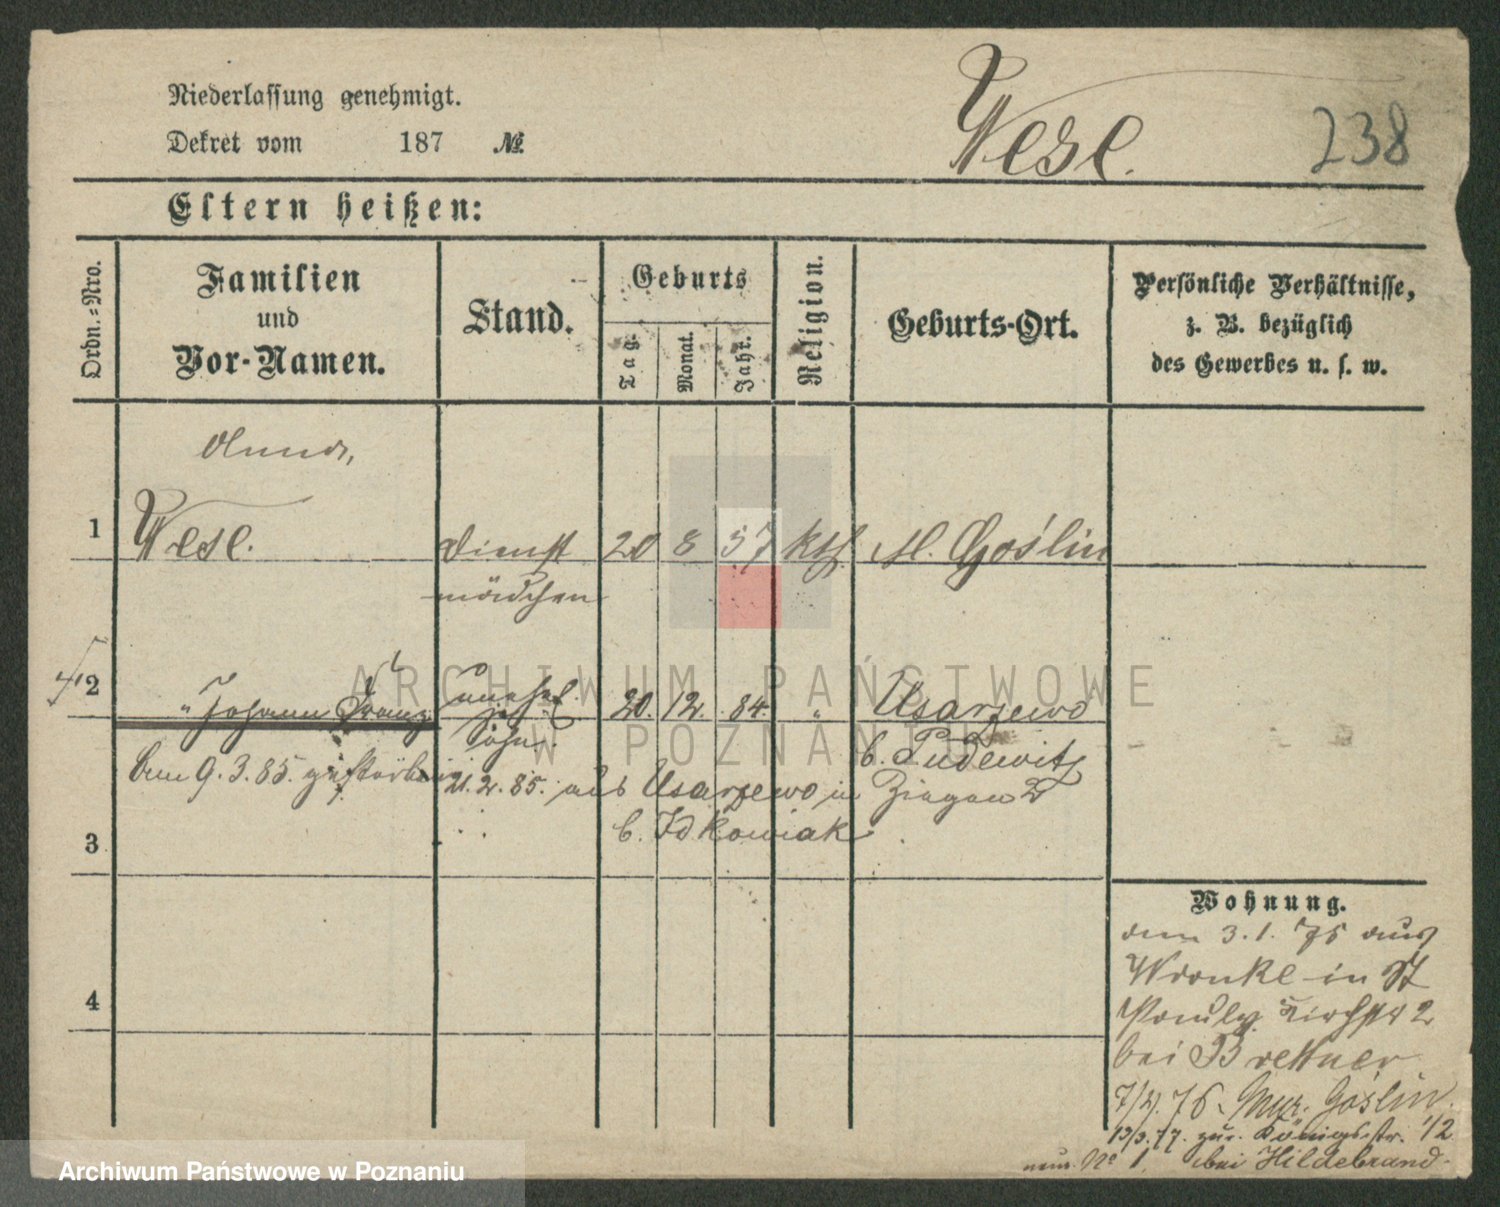 Niederlassung genehmigt.
Dekret vom 187 №
Wese.
238
Eltern heißen:
Ordn.-Nro.
Familien
und
Vor-Namen.
Stand.
Geburts
Tag.
Monat.
Jahr.
Religion.
Geburts-Ort.
Persönliche Verhältnisse,
z. B. bezüglich
des Gewerbes u. s. w.
1
Wese.
Dienst
mädchen
20 8 57 kth. M. Goślin
2
" Johann Franz
unehel.
Sohn.
20. 12. 84. " Usarzewo
b. Pudewitz
9. 3. 85. gestorben
21. 2. 85. aus Usarzewo in
b. Idkowiak
3
4
Wohnung.
den 3. 1. 75 aus
Wronke in St
2
bei Brettner
7/2. 76. Mur. Goślin.
13/3. 77. zur. Königsstr. 1/2
No 1 bei Hildebrand
ARCHIWUM PAŃSTWOWE
W POZNANIU
Archiwum Państwowe w Poznaniu